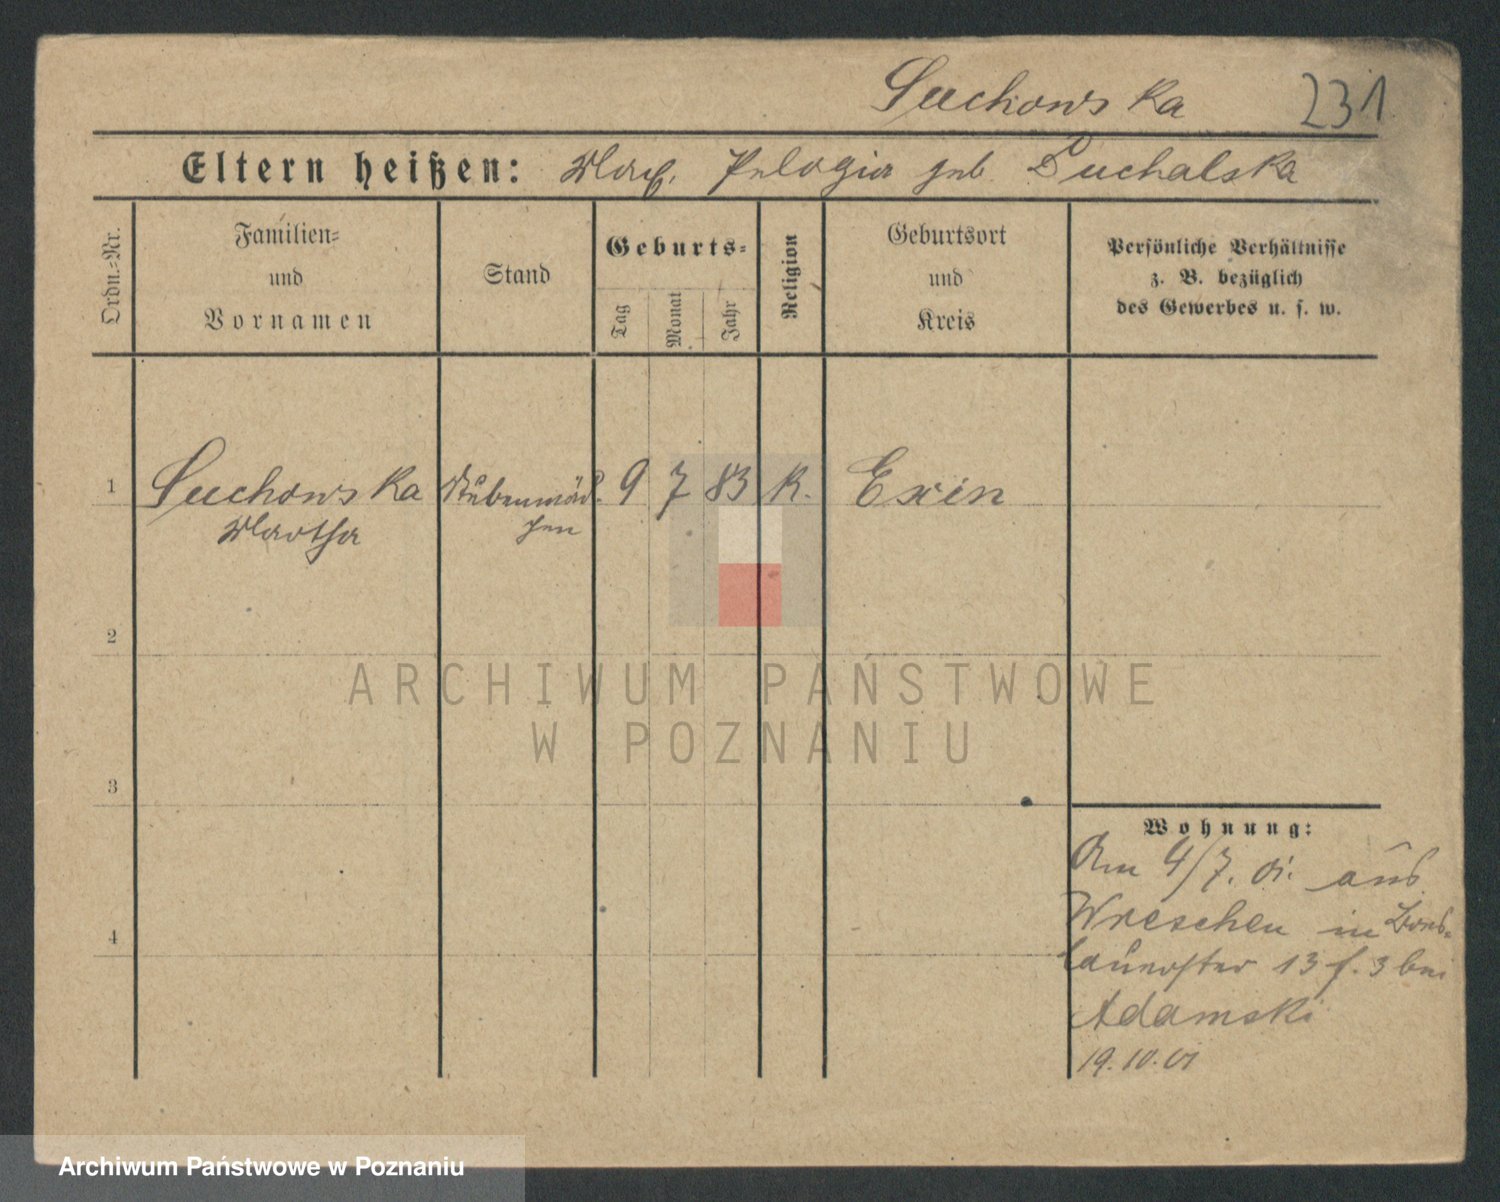 Suchowska 231
Eltern heißen: Marf. Pelagia geb. Puchalska
Ordn.=Nr.
Familien=
und
Vornamen
Stand
Geburts=
Tag
Monat
Jahr
Religion
Geburtsort
und
Kreis
Persönliche Verhältnisse
z. B. bezüglich
des Gewerbes u. s. w.
1 Suchowska Stubenmäd 9 7 83 K. Exin
Martha chen
2
3
4
Wohnung:
Am 4/7. 01. aus
Wreschen in Bres-
lauerstr 13 f. 3 bei
Adamski
19.10.01
ARCHIWUM PAŃSTWOWE
W POZNANIU
Archiwum Państwowe w Poznaniu